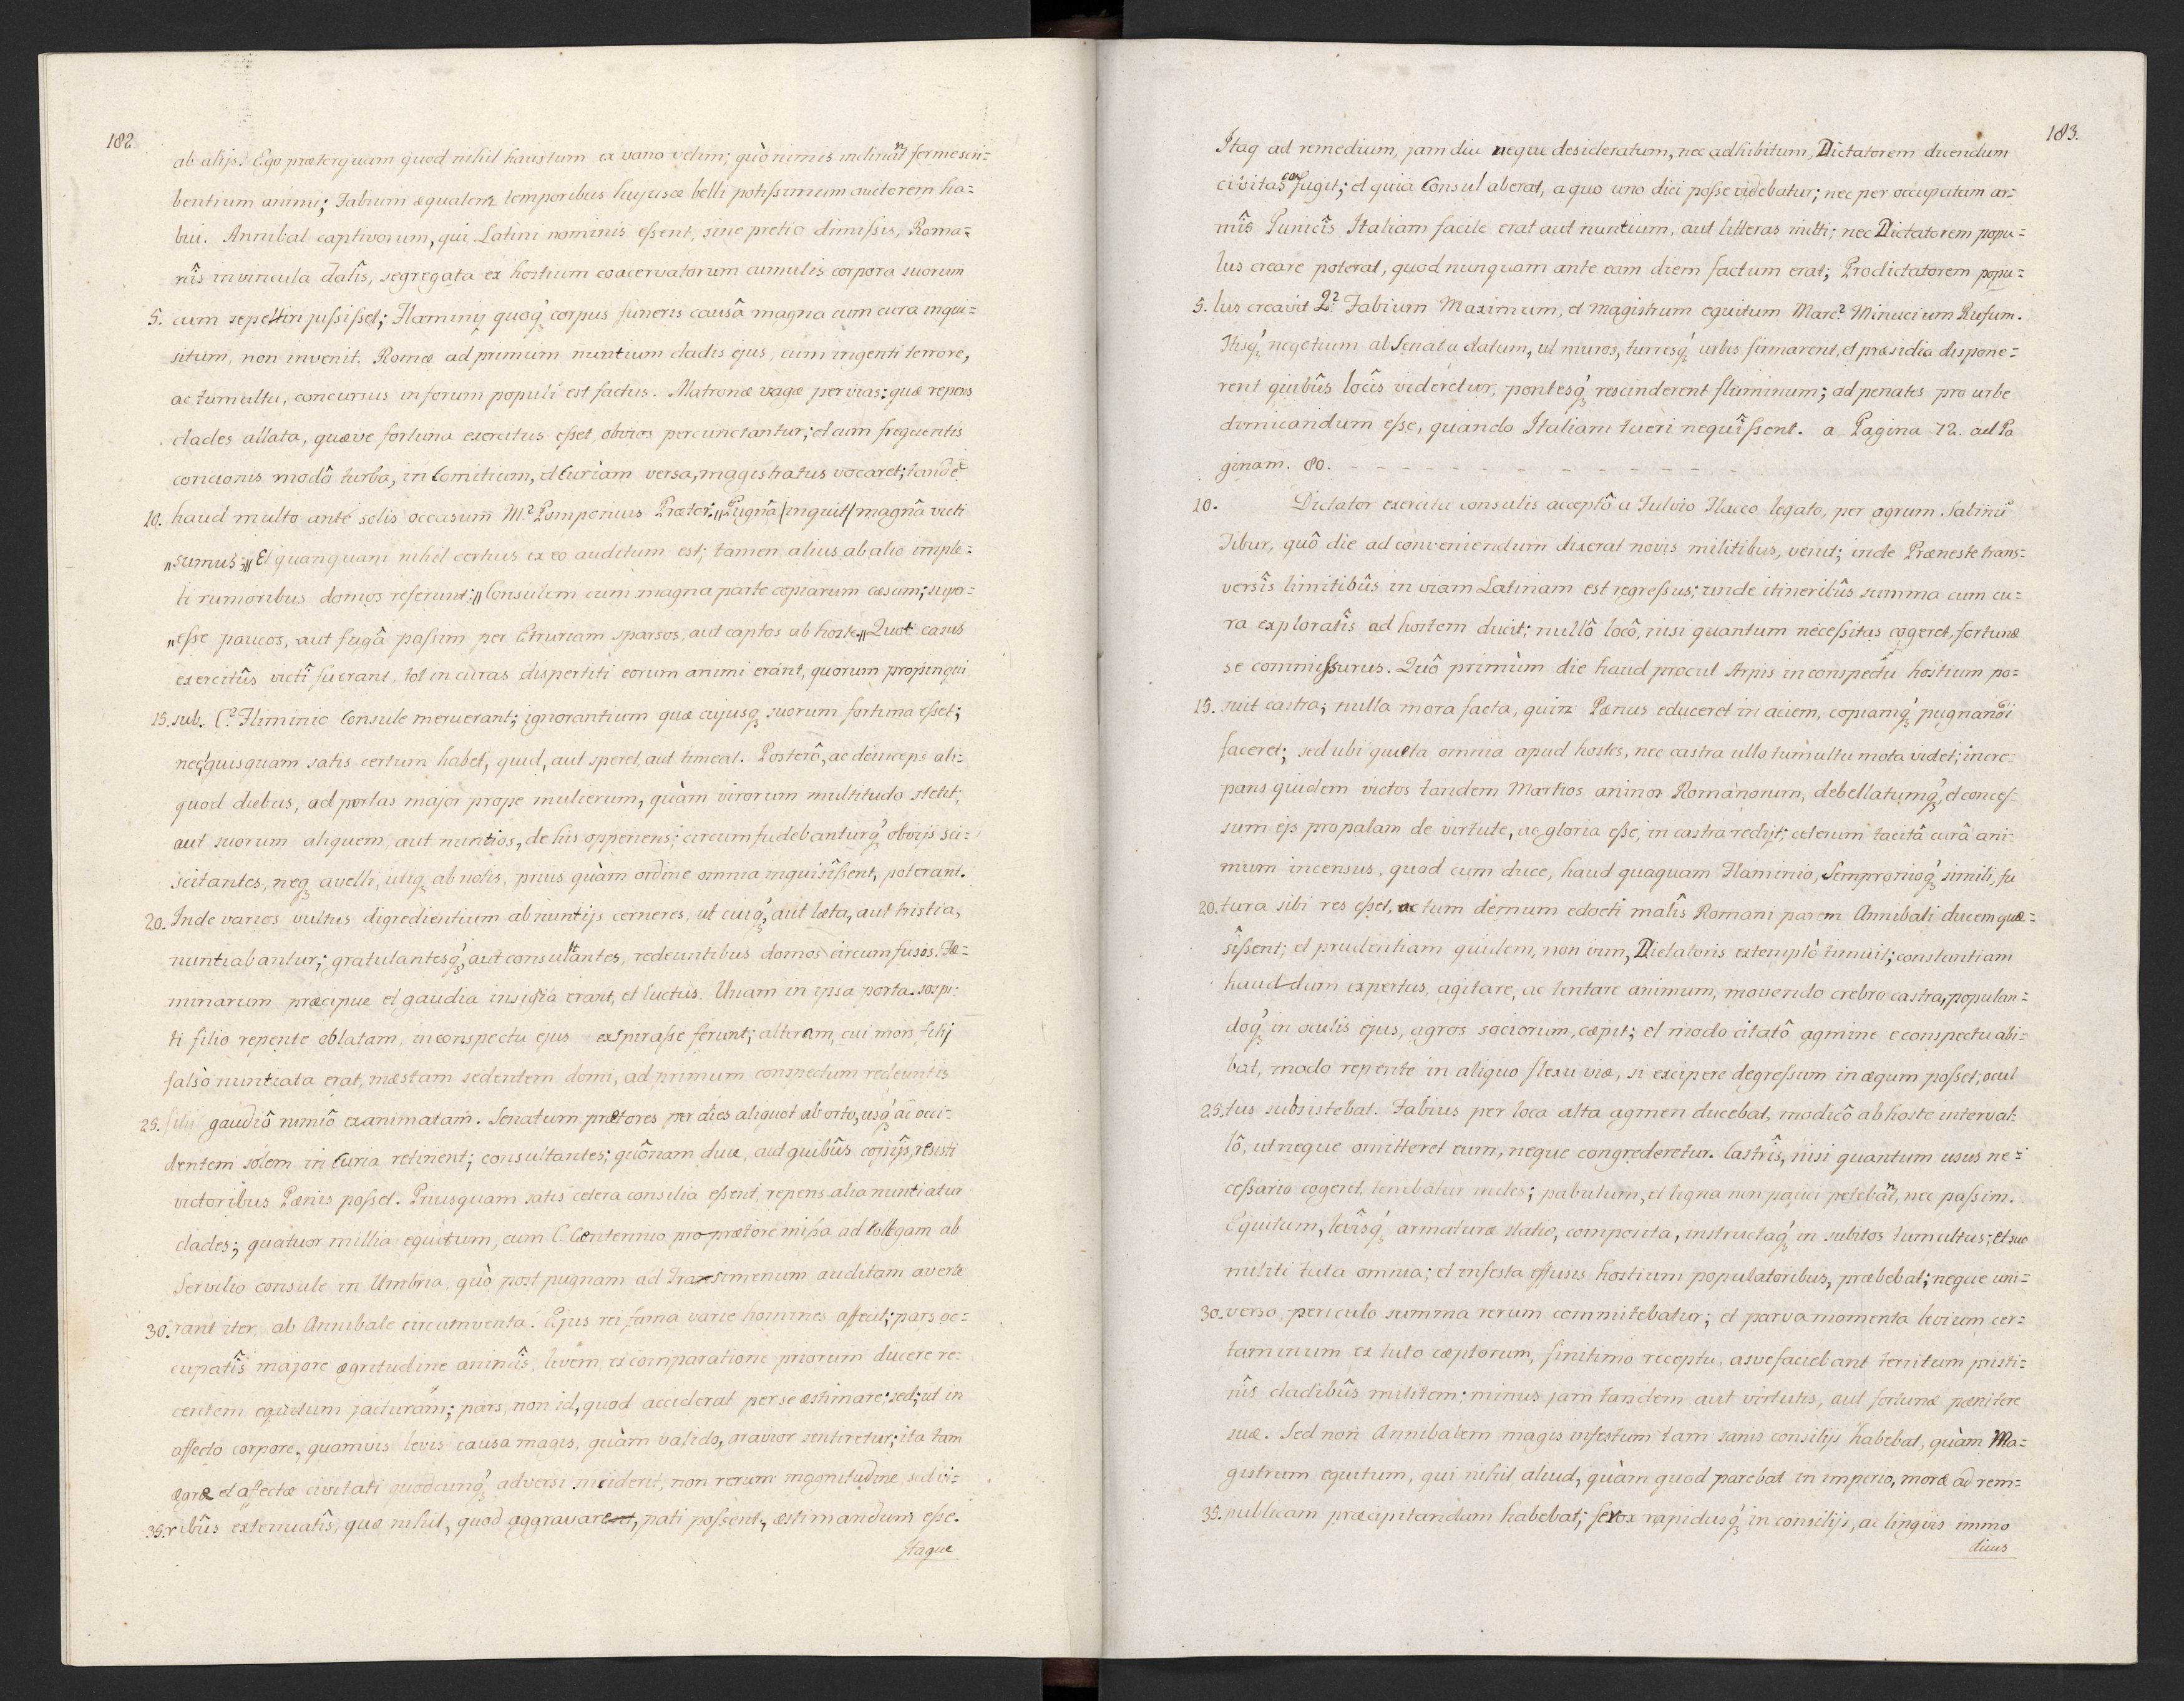 182.
ab alijs. Ego præterquam quod nihil haustum ex vano velim; quò nimis inclinât ferme scri=
bentium animi; Fabium æqualem temporibus hujusce belli potissimum auctorem ha=
bui. Annibal captivorum, qui Latini nominis essent, sine pretio dimissis, Roma=
nîs in vincula datîs, segregata ex hostium coacervatorum cumulis corpora suorum
5. cum sepeliri jussisset; Flaminij quoq́ corpus funeris causâ magna cum cura inqui=
situm, non invenit. Romæ ad primum nuntium cladis ejus, cum ingenti terrore,
ac tumultu, concursus in forum populi est factus. Matronæ vagæ per vias; quæ repens
clades allata, quæve fortuna exercitus esset, obvios percunctantur; et cum frequentis
concionis modô turba, in Comitium, et Curiam versa, magistratus vocaret; tandē
10. haud multo ante solis occasum M.ꝰ Pomponius Prætor: „Pugnâ /inquit/ magnâ victi
„sumus;„ Et quanquam nihil certius ex eo auditum est; tamen alius ab alio imple=
ti rumoribus domos referunt:„ Consulem cum magna parte copiarum cæsum; supe=
„esse paucos, aut fugâ passim per Etruriam sparsos, aut captos ab hoste.„ Quot casus
exercitûs victî fuerant, tot in curas dispertiti eorum animi erant, quorum propinqui
15. sub. C.ꝰ Fliminio Consule meruerant; ignorantium quæ cujusq́ suorum fortuna esset;
nec quisquam satis certum habet, quid, aut speret, aut timeat. Posterô, ac deinceps ali=
quod diebus, ad portas major prope mulierum, quàm virorum multitudo stetit;
aut suorum aliquem, aut nuntios, de his opperiens; circumfudebanturq́ obvijs sci=
scitantes, neq́ avelli, utiq́ ab notis, prius quàm ordine omnia inquisîssent, poterant.
20. Inde varios vultus digredientium ab nuntijs cerneres, ut cuiq́, aut læta, aut tristia,
nuntiabantur; gratulantesq́, aut consulantes, redeuntibus domos circumfusos. Fæ=
minarum præcipue et gaudia insignia erant, et luctus. Unam in ipsa porta sospi=
ti filio repente oblatam, in conspectu ejus exspirasse ferunt; alteram, cui mors filij
falsò nuntiata erat, mæstam sedentem domi, ad primum conspectum redeuntis
25. filij gaudiô nimiô exanimatam. Senatum prætores per dies aliquot ab ortu, usq́ ad occi=
dentem solem in Curia retinent; consultantes; quônam duce, aut quibûs copijs, resisti
victoribus Pænis posset. Priusquam satis cetera consilia essent, repens alia nuntiatur
clades; quatuor millia equitum, cum C. Centennio proprætore missa ad Collegam ab
Servilio consule in Umbria, quò post pugnam ad Trasimenum auditam averte
30. rant iter, ab Annibale circumventa. Ejus rei fama varie homines affecit; pars oc=
cupatîs majore ægritudine animîs, levem, ex comparatione priorum ducere re=
centem equitum jacturam; pars, non id, quod acciderat per se æstimare; sed, ut in
affecto corpore, quamvis levis causa magis, quàm valido, gravior sentiretur; ita tum
ægræ et affectæ civitati quodcunq́ adversi inciderit, non rerum magnitudine, sed vi=
35. ribûs extenuatîs, quæ nihil, quod aggravarent, pati possent, æstimandum esse.
Itaque
183.
Itaq́ ad remedium, jam diu neque desideratum, nec adhibitum, Dictatorem dicendum
civitas confugit; et quia Consul aberat, a quo uno dici posse videbatur; nec per occupatam ar=
mîs Punicîs Italiam facile erat aut nuntium, aut litteras mitti; nec Dictatorem popu=
lus creare poterat, quod nunquam ante eam diem factum erat; Prodictatorem popu=
5. lus creavit Q.ꝰ Fabium Maximum, et Magistrum equitum Marc.ꝰ Minucium Rufum.
Hisq́ negotium ab Senatu datum, ut muros, turresq́ urbis firmarent, et præsidia dispone=
rent quibûs locîs videretur, pontesq́ rescinderent fluminum; ad penates pro urbe
dimicandum esse, quando Italiam tueri nequîssent. a Pagina 72. ad Pa
ginam. 80. - - - - - - - - - - - - -
10. Dictator exercitu consulis acceptô a Fulvio Flacco legato, per agrum Sabinū
Tibur, quô die ad conveniendum dixerat novis militibus, venit; inde Præneste trans=
versîs limitibûs in viam Latinam est regressus; unde itineribûs summa cum cu=
ra exploratîs ad hostem ducit; nullô locô, nisi quantum necessitas cogeret, fortunæ
se commissurus. Quô primùm die haud procul Arpis in conspectu hostium po=
15. suit castra; nulla mora facta, quin Pænus educeret in aciem, copiamq́ pugnandi
faceret; sed ubi quieta omnia apud hostes, nec castra ullo tumultu mota videt; incre=
pans quidem victos tandem Martios animos Romanorum, debellatumq́, et conces=
sum ejs propalam de virtute, ac gloria esse, in castra redijt; ceterum tacitâ curâ ani=
mum incensus, quod cum duce, haud quaquam Flaminio, Sempronioq́ simili, fu
20. tura sibi res esset, ac tum demum edocti malîs Romani parem Annibali ducem quæ=
sîssent; et prudentiam quidem, non vim, Dictatoris extemplò timuit; constantiam
haud dum expertus, agitare, ac tentare animum, movendo crebro castra, populan=
doq́ in oculis ejus, agros sociorum, cæpit; et modo citatô agmine e conspectu abi=
bat, modo repente in aliquo flexu viæ, si excipere degressum in æqum posset, ocul
25. tus subsistebat. Fabius per loca alta agmen ducebat, modicô ab hoste interval=
lô, ut neque omitteret eum, neque congrederetur. Castrîs, nisi quantum usus ne=
cessario cogeret, tenebatur miles; pabulum, et ligna non pauci petebāt, nec passim.
Equitum, levîsq́ armaturæ statio, composita, instructaq́ in subitos tumultus; et suo
militi tuta omnia; et infesta effusis hostium populatoribus, præbebat; neque uni=
30. verso periculo summa rerum commitebatur; et parva momenta levium cer=
taminum ex tuto cæptorum, finitimo receptu, asvefaciebant territum pristi=
nîs cladibûs militem; minus jam tandem aut virtutis, aut fortunæ pænitere
suæ. Sed non Annibalem magis infestum tam sanis consilijs habebat, quàm Ma=
gistrum equitum, qui nihil aliud, quàm quod parebat in imperio, moræ ad rem=
35. publicam præcipitandum habebat; ferox rapidusq́ in consilijs, ac linguis immo
dicus